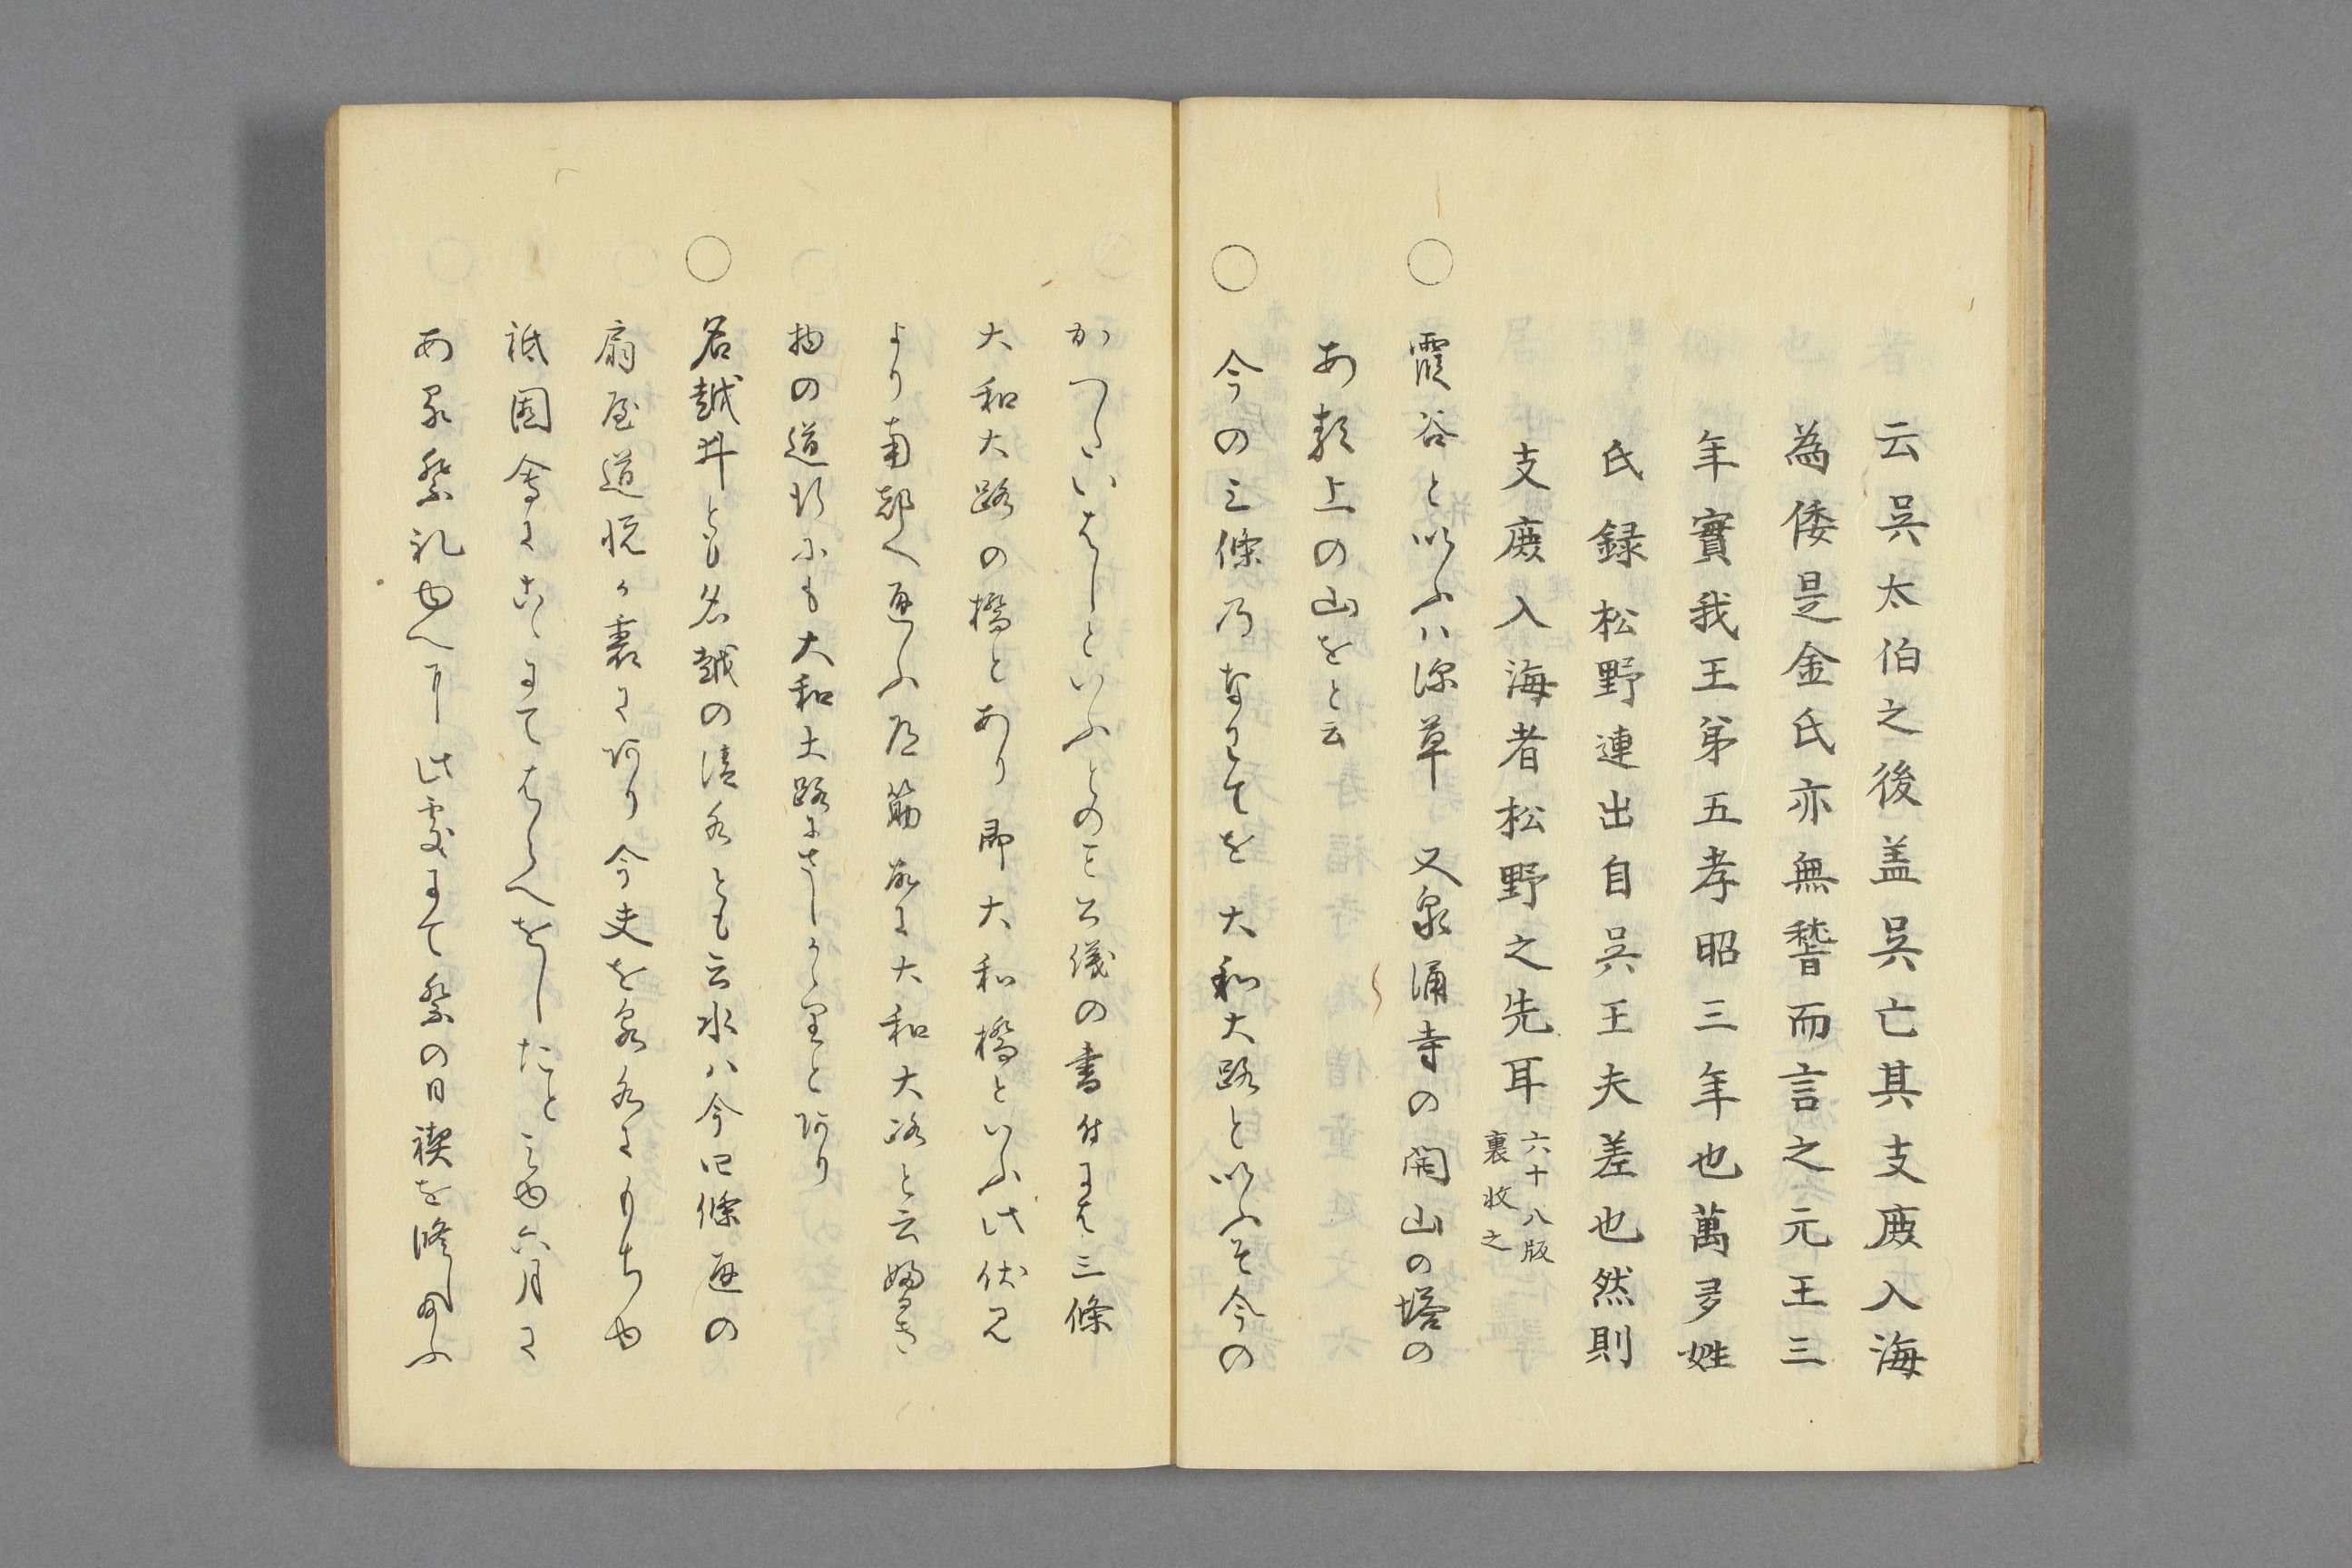 云呉太伯之後盖呉亡其支庶入海
為倭是金氏亦無稽而言之元王三
年實我王第五孝昭三年也萬多姓
氏録松野連出自呉王夫差也然則
支庶入海者松野之先耳 六十八版
裏收之
○霞谷と以ふハ深草 又泉涌寺の開山の塔の
ある上の山をと云
○今の三條乃 なはてを大和大路と以ふそ今の
かつしいはしといふとのこと公儀の書付には三條
大和大路の橋とあり 即大和橋といふ此伏見
より南都へ通ふ道筋故に大和大路と云
物の道行にも大和大路にさしかゝ里と阿り
○名越井とも名越の清水とも云水ハ今四條通の
扇屋道悦か裏に阿り今夫を泉水にもちゆ
祇園會にこゝにてはらへをしたと 六月に
ある祭礼ゆへ 此處にて祭の日禊を修し給ふ